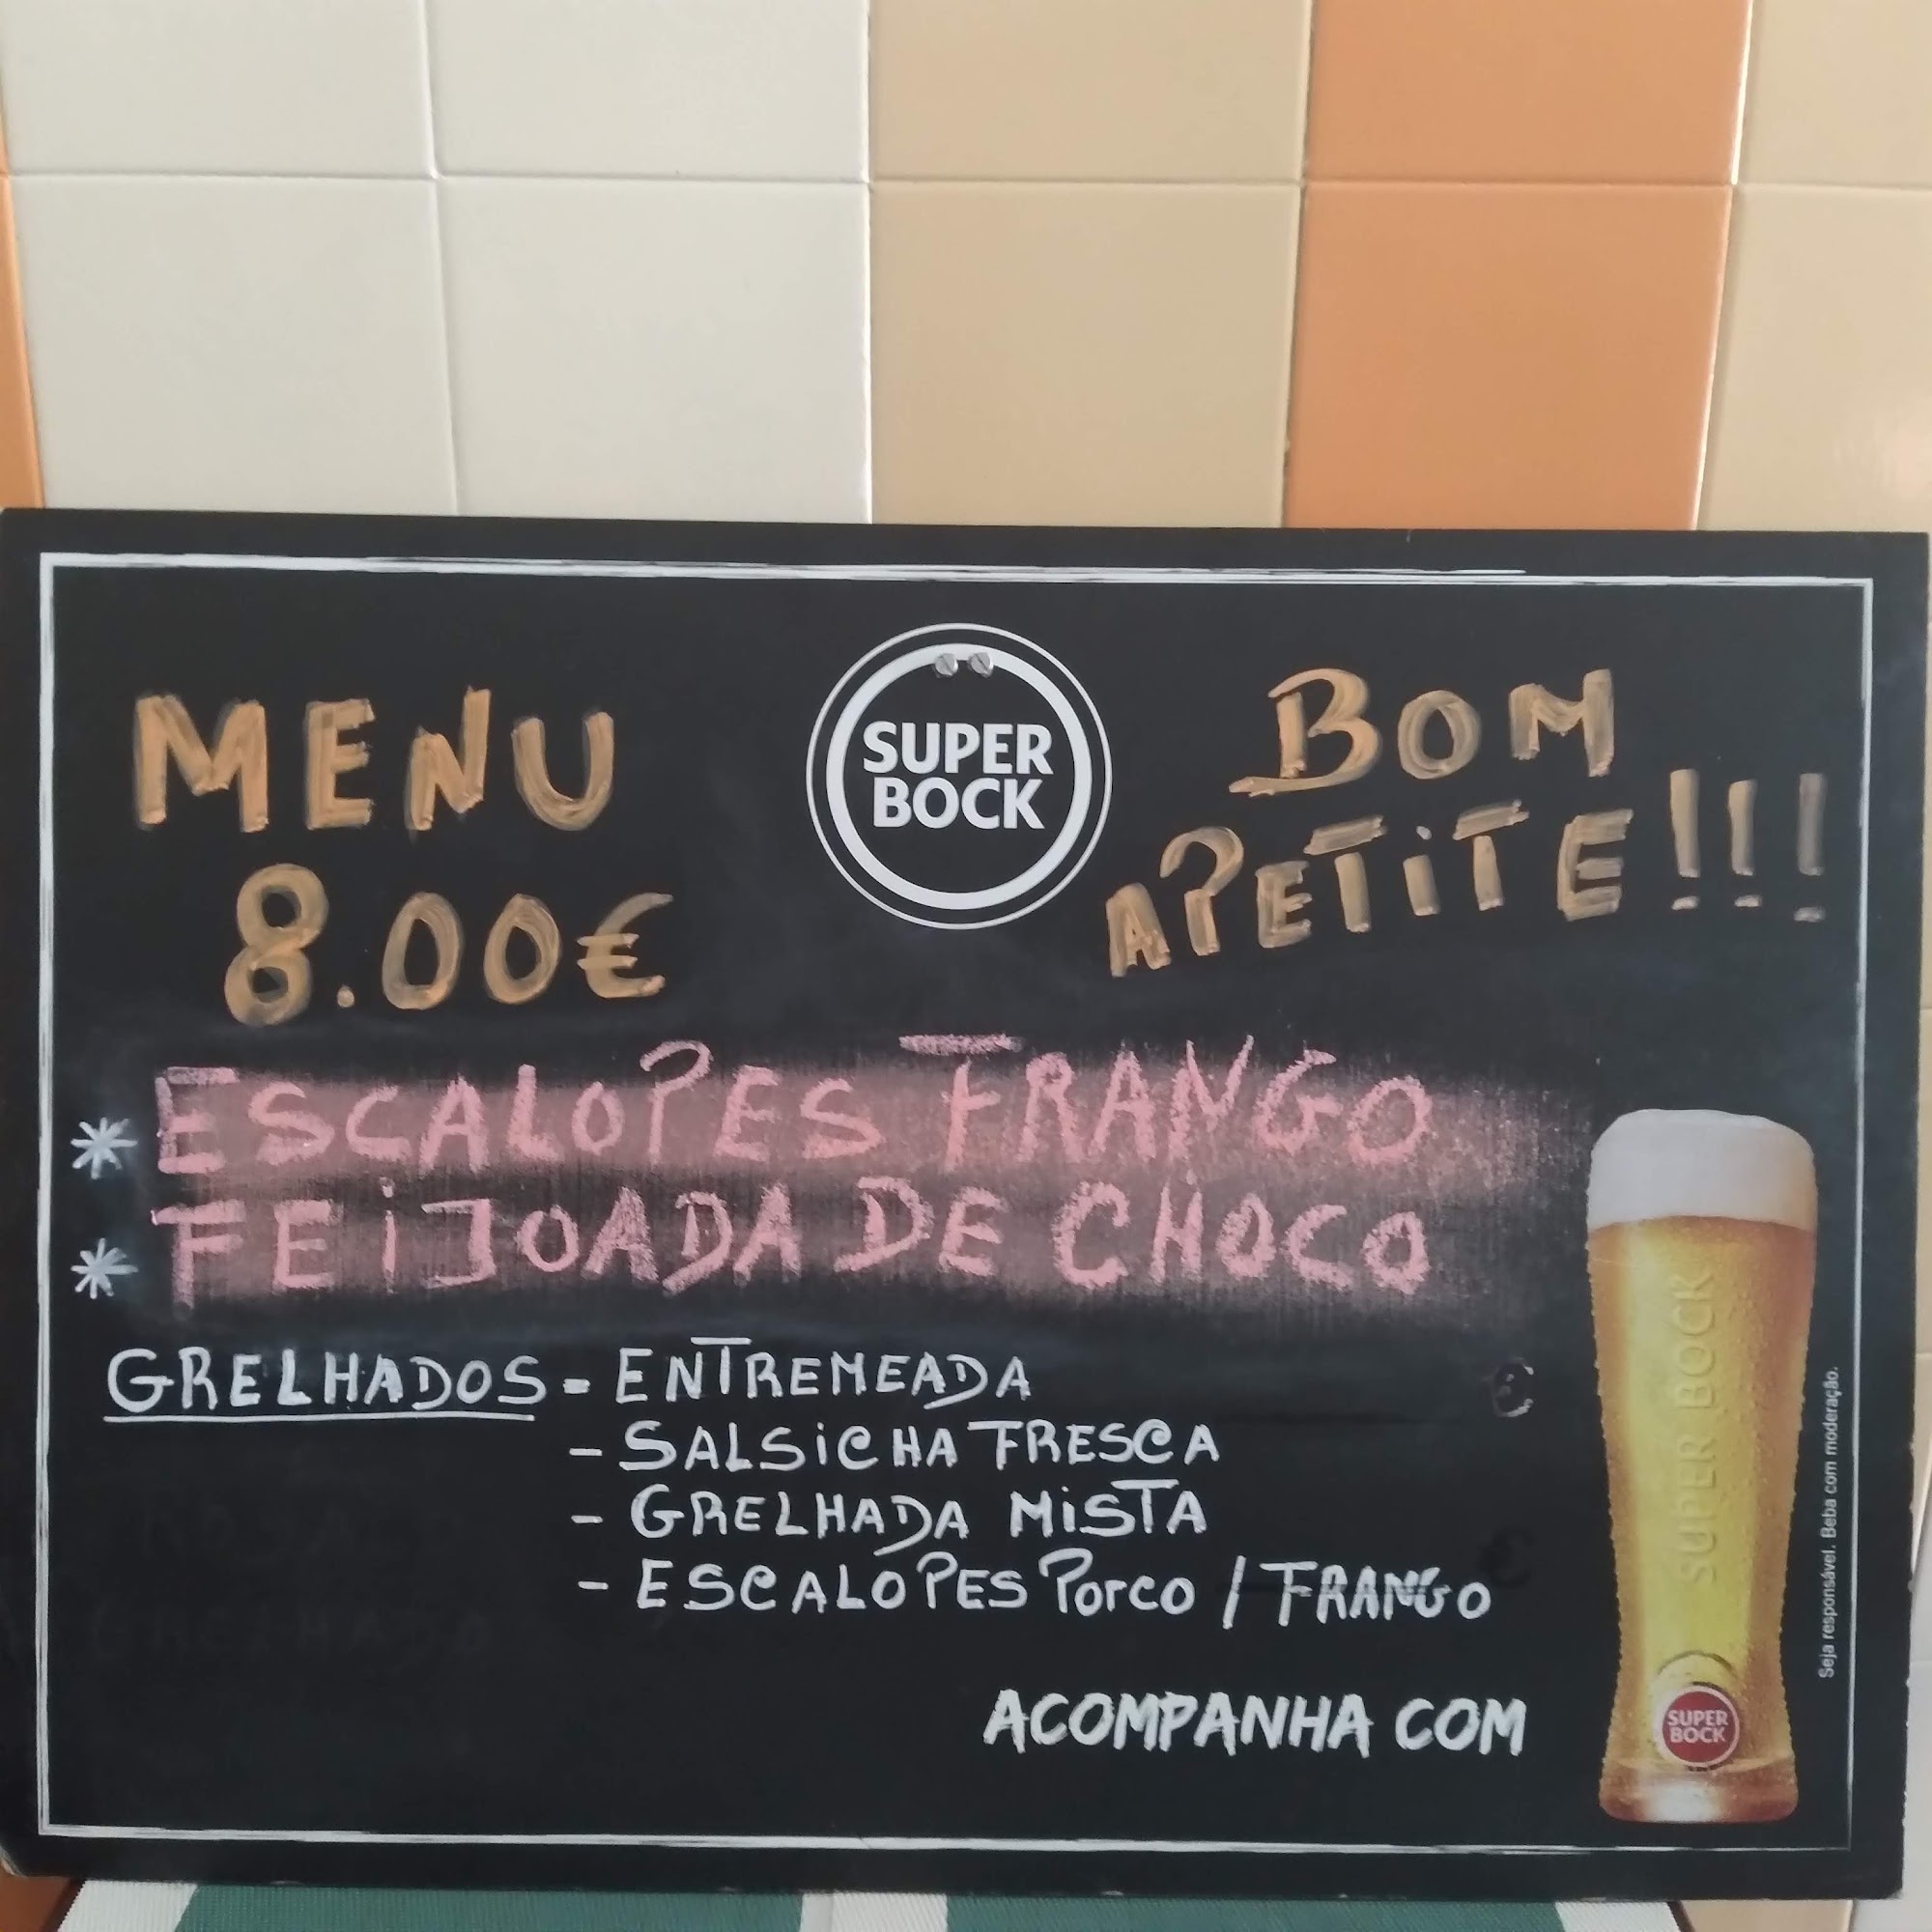 MENU
8.00€
SUPER
BOCK
BOM
APETiTE!!!
* ESCALOPES FRANGO
* FEiJOADA DE CHOCO
GRELHADOS - ENTREMEADA
- SALSiCHA FRESCA
- GRELHADA MiSTA
- ESCALOPES Porco / FRANGO
ACOMPANHA COM
SUPER BOCK
SUPER
BOCK
Seja responsável. Beba com moderação.